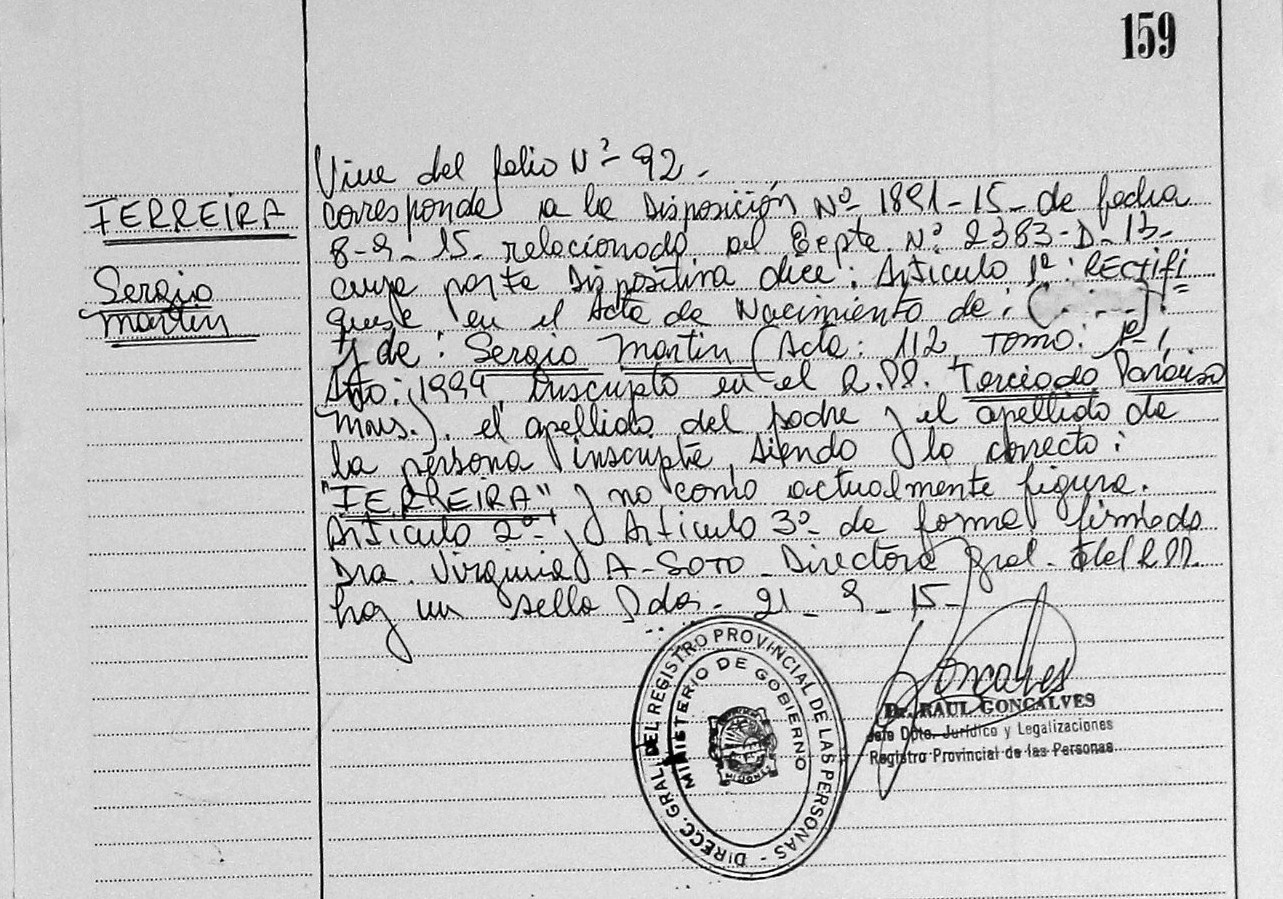 159
Vine del folio Nº 92.
FERREIRA
Sergio
Martin
Corresponde a la Disposición Nº 1891-15- de fecha
8-9-15. relacionado al Expte. Nº 2383-D-13-
cuya parte Dispositiva dice: Articulo 1º: RECtifi
quese en el Acta de Nacimiento de: (
y de: Sergio Martin (Acta: 112, Tomo: 1º,
Año: 1999, Inscripto en el R.PP. Terciado Paraiso
Mnes.). el apellido del padre y el apellido de
la persona inscripta, siendo lo correcto:
"FERREIRA", y no como actualmente figura.
Articulo 2º- y Articulo 3º- de forma firmado
Dra. Virginia A-SOTO- Directora Gral. del R.PP.
hay un sello Pdas- 21-9-15-
DIRECC. GRAL. DEL REGISTRO PROVINCIAL DE LAS PERSONAS -
MINISTERIO DE GOBIERNO
MISIONES
Goncalves
Dr. RAUL GONCALVES
Jefe Dpto. Jurídico y Legalizaciones
Registro Provincial de las Personas